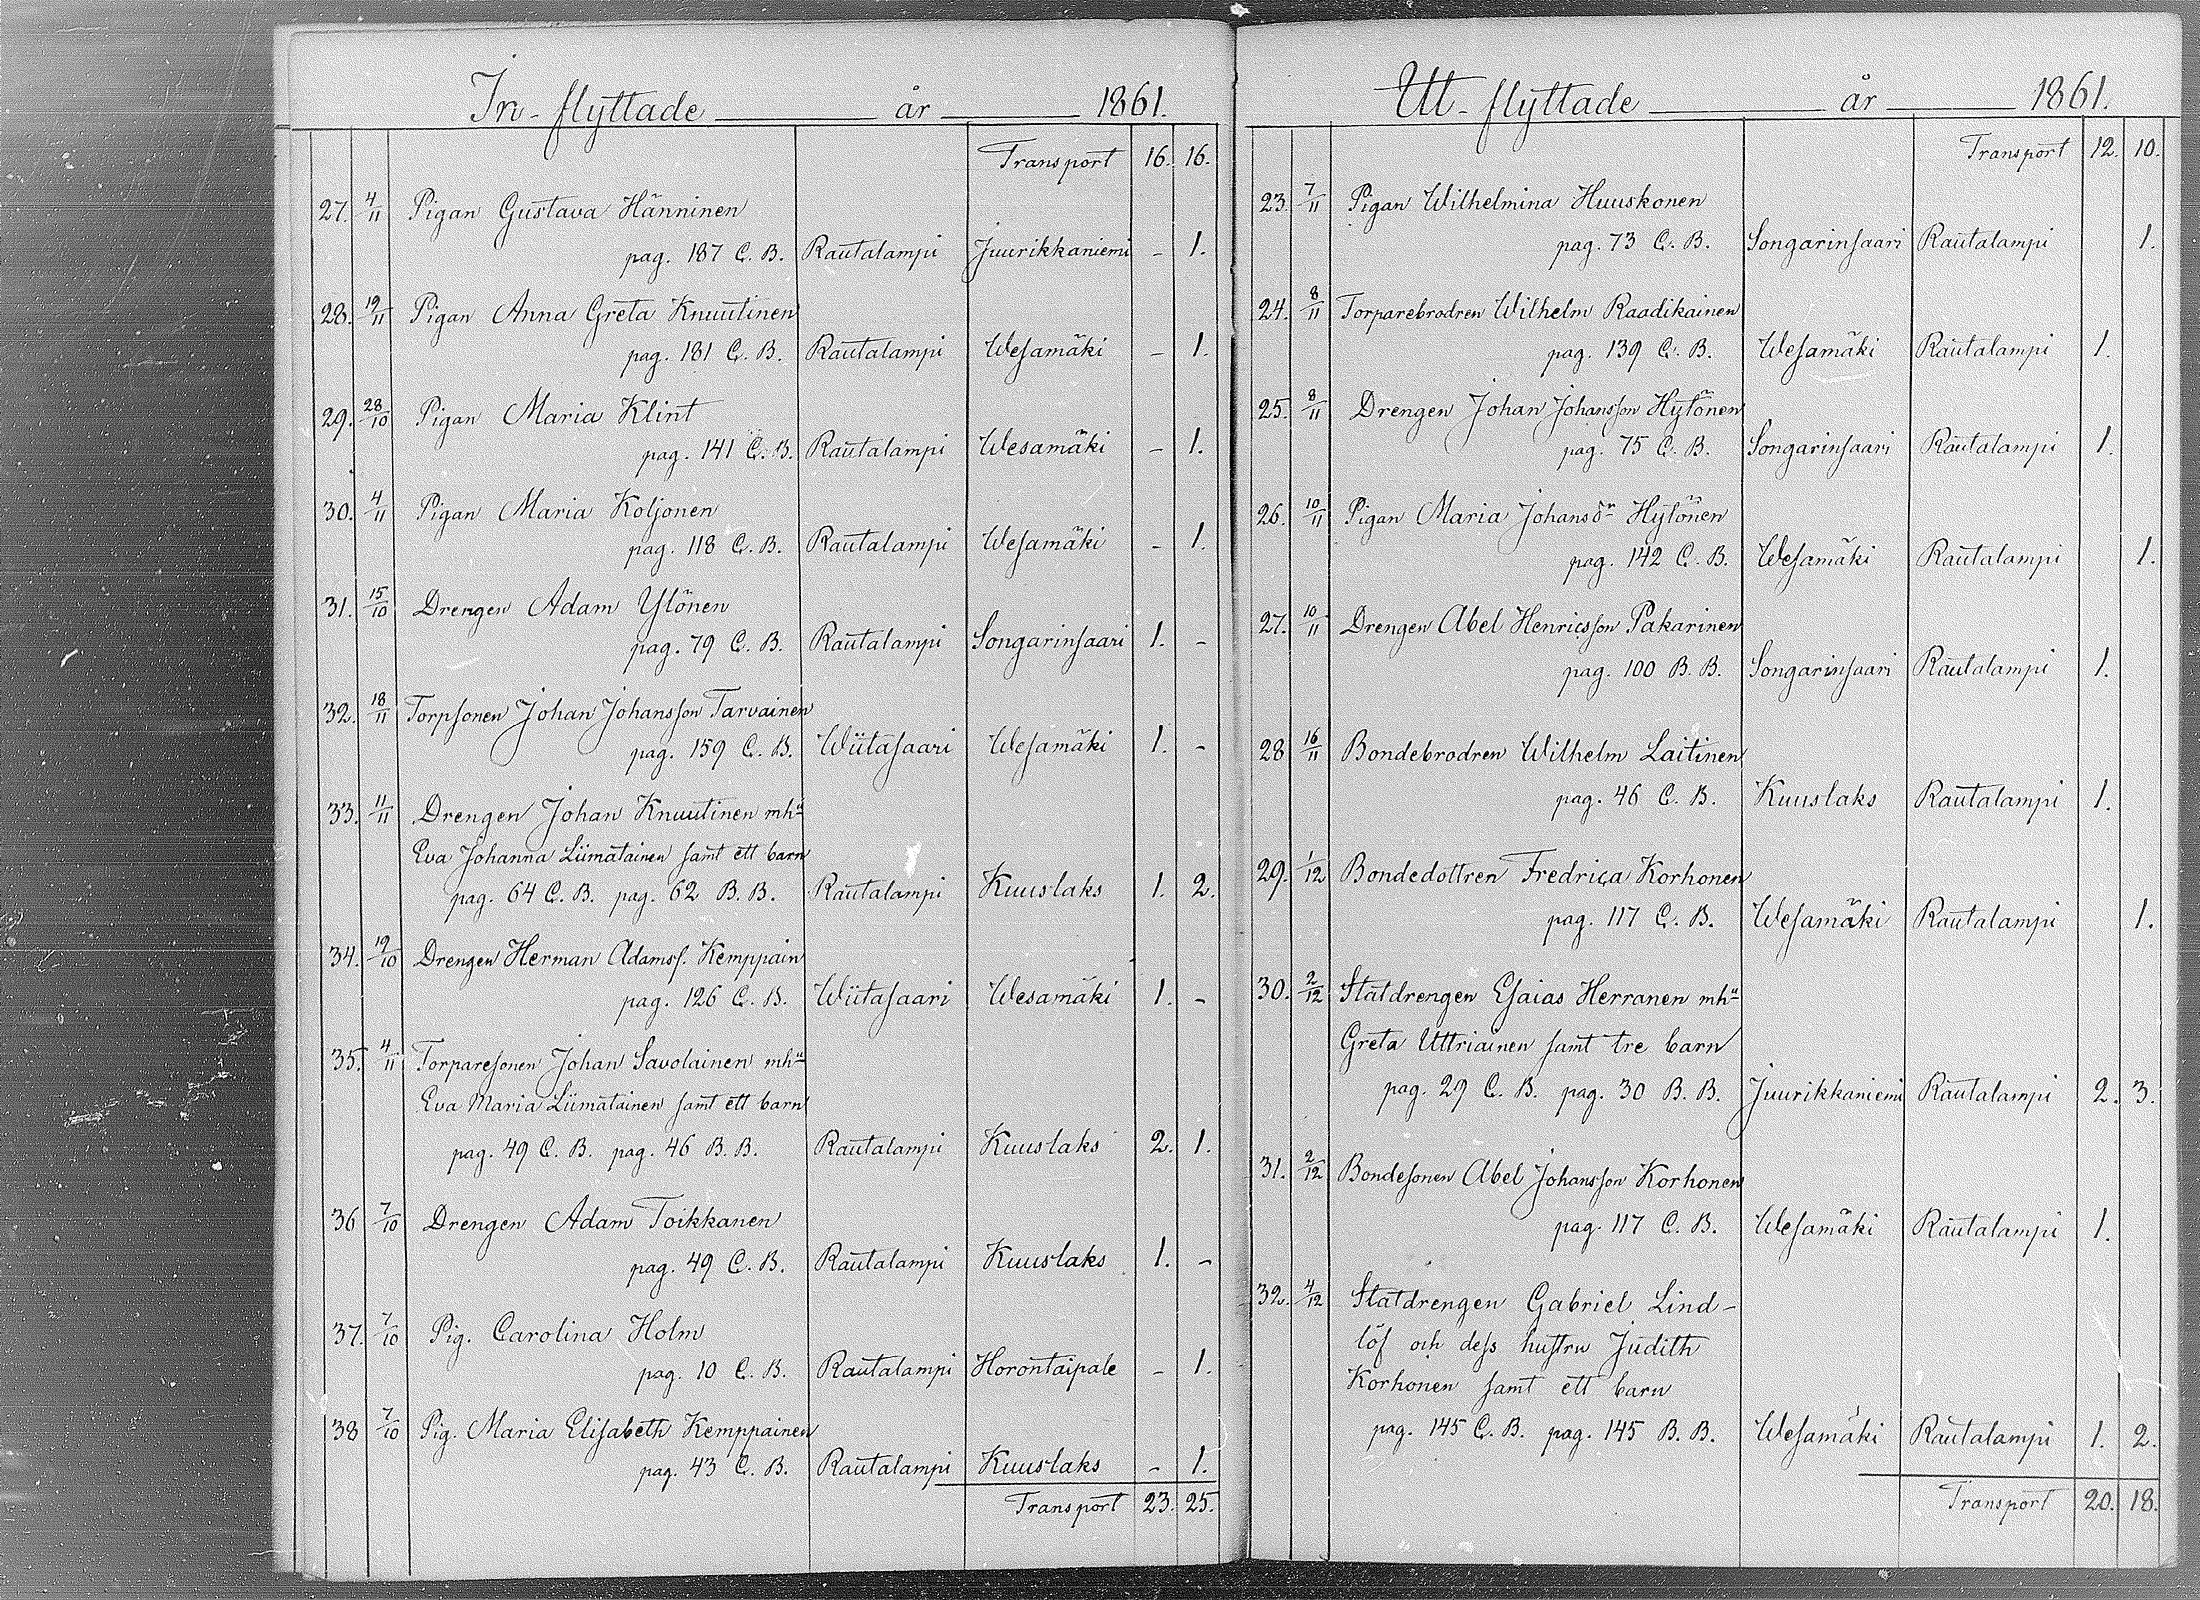 In-flyttade år 1861.
Transport 16. 16.
27. 4/11 Pigan Gustava Hänninen
pag. 187 C. B. Rautalampi Juurikkaniemi - 1.
28. 19/11 Pigan Anna Greta Knuutinen
pag. 181 C. B. Rautalampi Wesamäki - 1.
29. 28/10 Pigan Maria Klint
pag. 141 C. B. Rautalampi Wesamäki - 1.
30. 4/11 Pigan Maria Koljonen
pag. 118 C. B. Rautalampi Wesamäki - 1.
31. 15/10 Drengen Adam Ylönen
pag. 79 C. B. Rautalampi Songarinsaari 1. -
32. 18/11 Torpsonen Johan Johansson Tarvainen
pag. 159 C. B. Wiitasaari Wesamäki 1. -
33. 11/11 Drengen Johan Knuutinen mhu
Eva Johanna Liimatainen samt ett barn
pag. 64 C. B. pag. 62 B. B. Rautalampi Kuuslaks 1. 2.
34. 19/10 Drengen Herman Adamss. Kemppain
pag. 126 C. B. Wiitasaari Wesamäki 1. -
35. 4/11 Torparesonen Johan Savolainen mhu
Eva Maria Liimatainen samt ett barn
pag. 49 C. B. pag. 46 B. B. Rautalampi Kuuslaks 2. 1.
36 7/10 Drengen Adam Toikkanen
pag. 49 C. B. Rautalampi Kuuslaks 1. -
37. 7/10 Pig. Carolina Holm
pag. 10 C. B. Rautalampi Horontaipale - 1.
38 7/10 Pig. Maria Elisabeth Kemppainen
pag. 43 C. B. Rautalampi Kuuslaks - 1.
Transport 23. 25.
Ut-flyttade år 1861.
Transport 12. 10.
23. 7/11 Pigan Wilhelmina Huuskonen
pag. 73 C. B. Songarinsaari Rautalampi 1.
24. 8/11 Torparebrodren Wilhelm Raadikainen
pag. 139 C. B. Wesamäki Rautalampi 1.
25. 8/11 Drengen Johan Johansson Hytönen
pag. 75 C. B. Songarinsaari Rautalampi 1.
26. 10/11 Pigan Maria Johansdr Hytönen
pag. 142 C. B. Wesamäki Rautalampi 1.
27. 10/11 Drengen Abel Henricsson Pakarinen
pag. 100 B. B. Songarinsaari Rautalampi 1.
28 16/11 Bondebrodren Wilhelm Laitinen
pag. 46 C. B. Kuuslaks Rautalampi 1.
29. 1/12 Bondedottren Fredrica Korhonen
pag. 117 C. B. Wesamäki Rautalampi 1.
30. 2/12 Statdrengen Esaias Herranen mhu
Greta Uttriainen samt tre barn
pag. 29 C. B. pag. 30 B. B. Juurikkaniemi Rautalampi 2. 3.
31. 2/12 Bondesonen Abel Johansson Korhonen
pag. 117 C. B. Wesamäki Rautalampi 1.
32. 4/12 Statdrengen Gabriel Lind-
löf och dess hustru Judith
Korhonen samt ett barn
pag. 145 C. B. pag. 145 B. B. Wesamäki Rautalampi 1. 2.
Transport 20. 18.